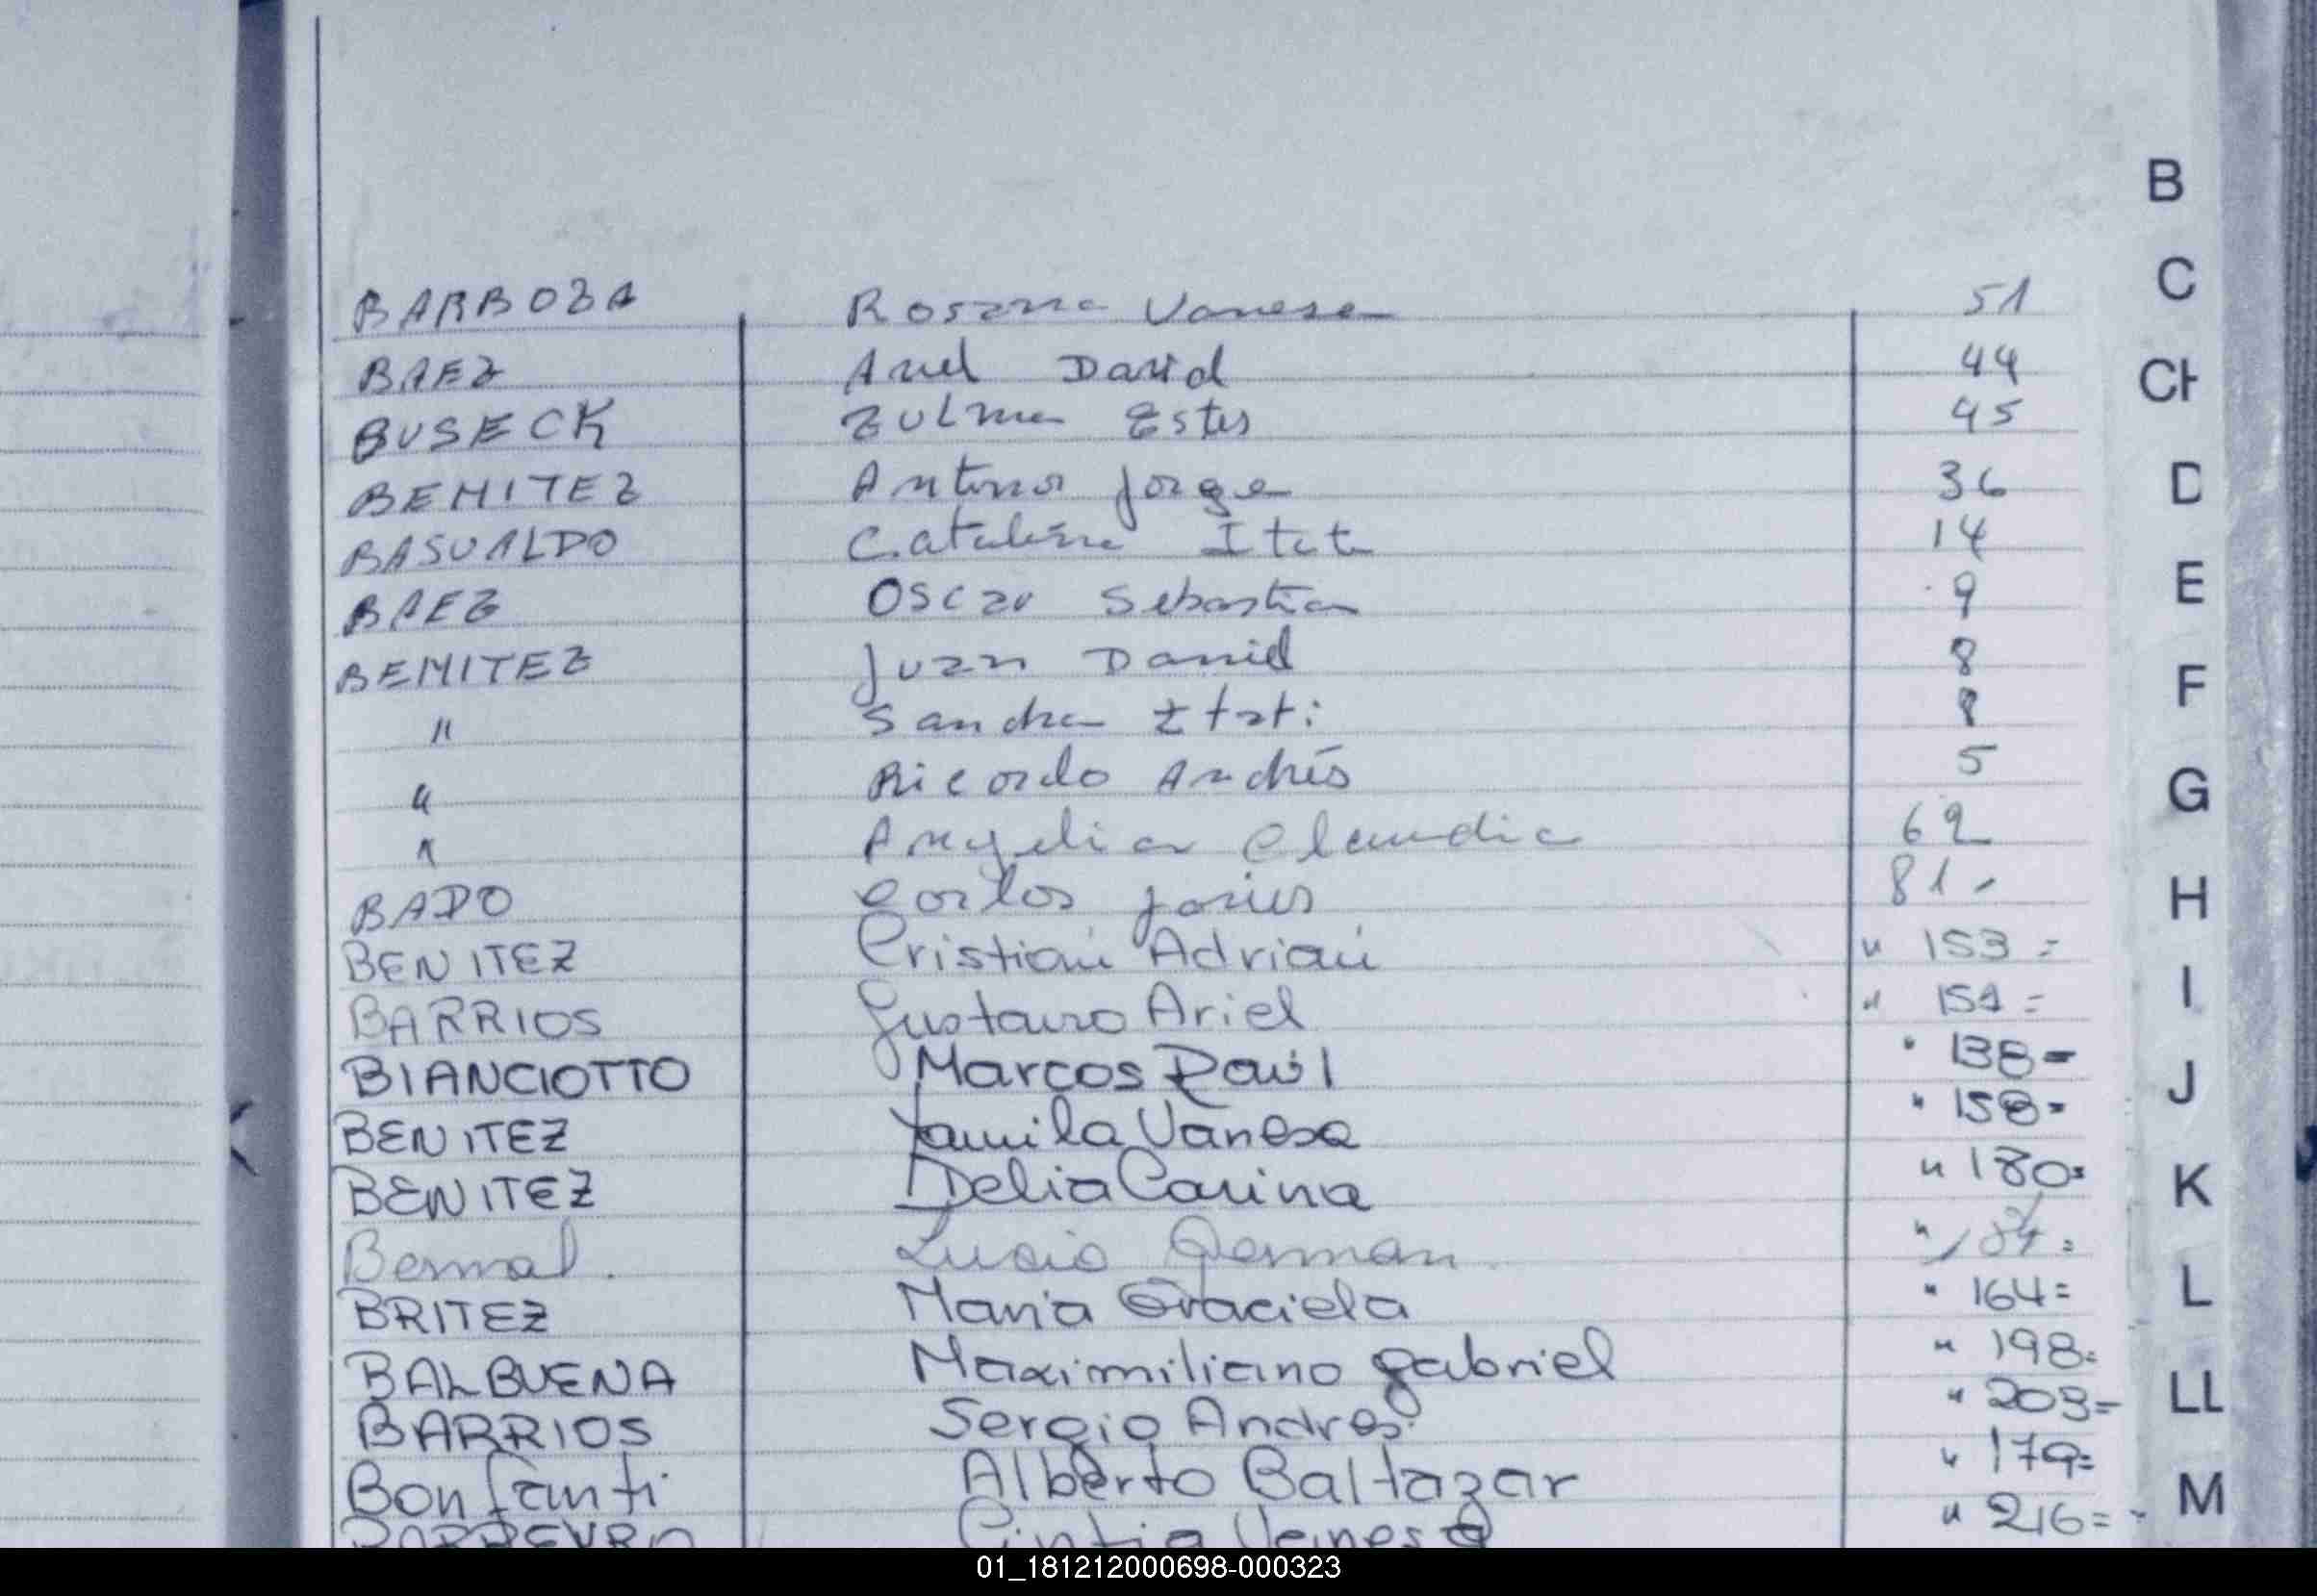 BARBOZA Rosana Vanesa 51
B
BAEZ Ariel David 44
C
BUSECK Zulma Ester 45
CH
BENITEZ Antonio Jorge 36
D
BASUALDO Catalina Itatí 14
BAEZ Oscar Sebastian 9
E
BENITEZ Juan Daniel 8
F
" Sandra Itati 8
" Ricardo Andrés 5
G
" Angelica Claudia 62
BADO Carlos Javier 81
H
BENITEZ Cristian Adrian " 153=
BARRIOS Gustavo Ariel " 151=
I
BIANCIOTTO Marcos Raúl " 138=
J
BENITEZ Yamila Vanesa " 158=
BENITEZ Delia Carina " 180=
K
Bernal. Lucio German "
BRITEZ Maria Graciela " 164=
L
BALBUENA Maximiliano gabriel " 198=
BARRIOS Sergio Andres " 203=
LL
Bonfanti Alberto Baltazar " 179=
M
Cintia Vanesa " 216=
01_181212000698-000323